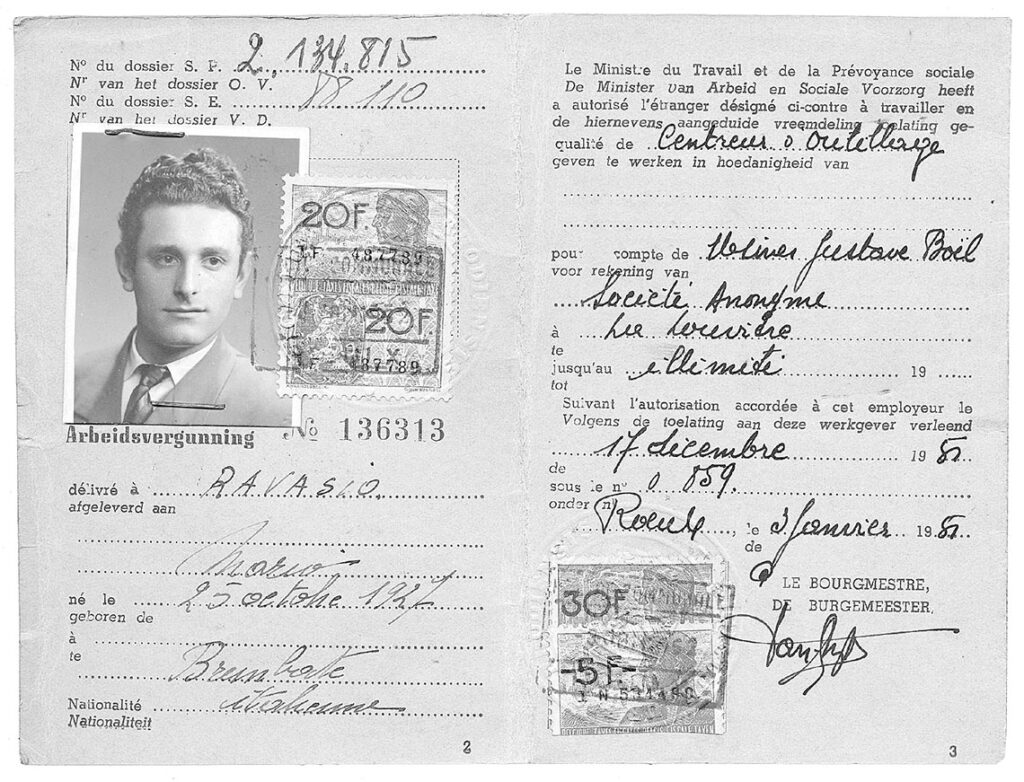 Nº du dossier S. P. 2.134.815
Nr van het dossier O. V.
Nº du dossier S. E. 88 110
Nr van het dossier V. D.
20F.
1F 487789
20F.
1F 487789
Arbeidsvergunning Nº 136313
délivré à RAVASIO
afgeleverd aan
Mario
né le 25 octobre 1927
geboren de
à
te
Brembate
Nationalité italienne
Nationaliteit
2
Le Ministre du Travail et de la Prévoyance sociale
De Minister van Arbeid en Sociale Voorzorg heeft
a autorisé l'étranger désigné ci-contre à travailler en
de hiernevens aangeduide vreemdeling toelating ge-
qualité de Centreur d'outillage
geven te werken in hoedanigheid van
pour compte de Usines Gustave Boël
voor rekening van
Société Anonyme
à La Louvière
te
jusqu'au illimité 19
tot
Suivant l'autorisation accordée à cet employeur le
Volgens de toelating aan deze werkgever verleend
17 décembre 19
de
sous le nº 0 859.
onder nr
Roeulx, le 3 Janvier 19
de
LE BOURGMESTRE,
DE BURGEMEESTER,
30F
-5F-
3